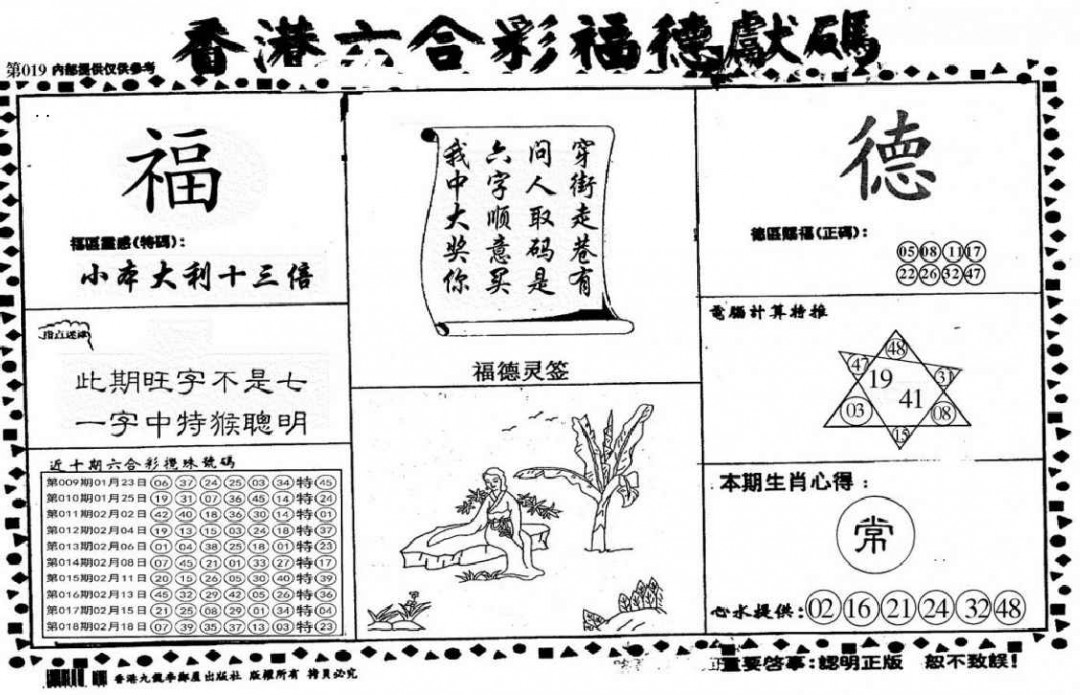 香港六合彩福德獻碼
第019 内部提供仅供參考
福
福區靈感(特碼):
小本大利十三倍
指点迷津
此期旺字不是七
一字中特猴聰明
近十期六合彩攪珠號碼
第009期01月23日 06 37 24 25 03 34 特 45
第010期01月25日 19 31 07 36 45 14 特 24
第011期02月02日 42 40 18 36 30 14 特 01
第012期02月04日 19 13 15 03 24 18 特 37
第013期02月06日 01 04 38 25 18 01 特 23
第014期02月08日 07 45 21 01 33 27 特 17
第015期02月11日 20 15 26 05 30 40 特 39
第016期02月13日 45 32 29 42 05 26 特 36
第017期02月15日 21 25 08 29 01 34 特 04
第018期02月18日 07 39 35 37 13 03 特 23
穿街走巷有
问人取码是
六字顺意买
我中大奖你
福德灵签
德
德區賜福(正碼):
05 08 11 17
22 26 32 47
電腦計算特推
48
47
31
19
41
03
08
15
本期生肖心得:
常
心水提供: 02 16 21 24 32 48
香港九龍李鄭屋出版社 版權所有 拷貝必究
重要啓事:認明正版 般不致誤!